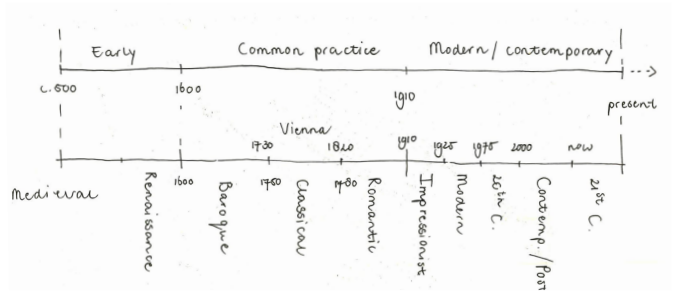 Early Common practice Modern / contemporary
c.500 1600 1910 present
Vienna
1730 1820 1910 1925 1975 2000 now
Medieval Renaissance 1600 Baroque 1750 Classical 1780 Romantic Impressionist Modern 20th C. Contemp./Post 21st C.